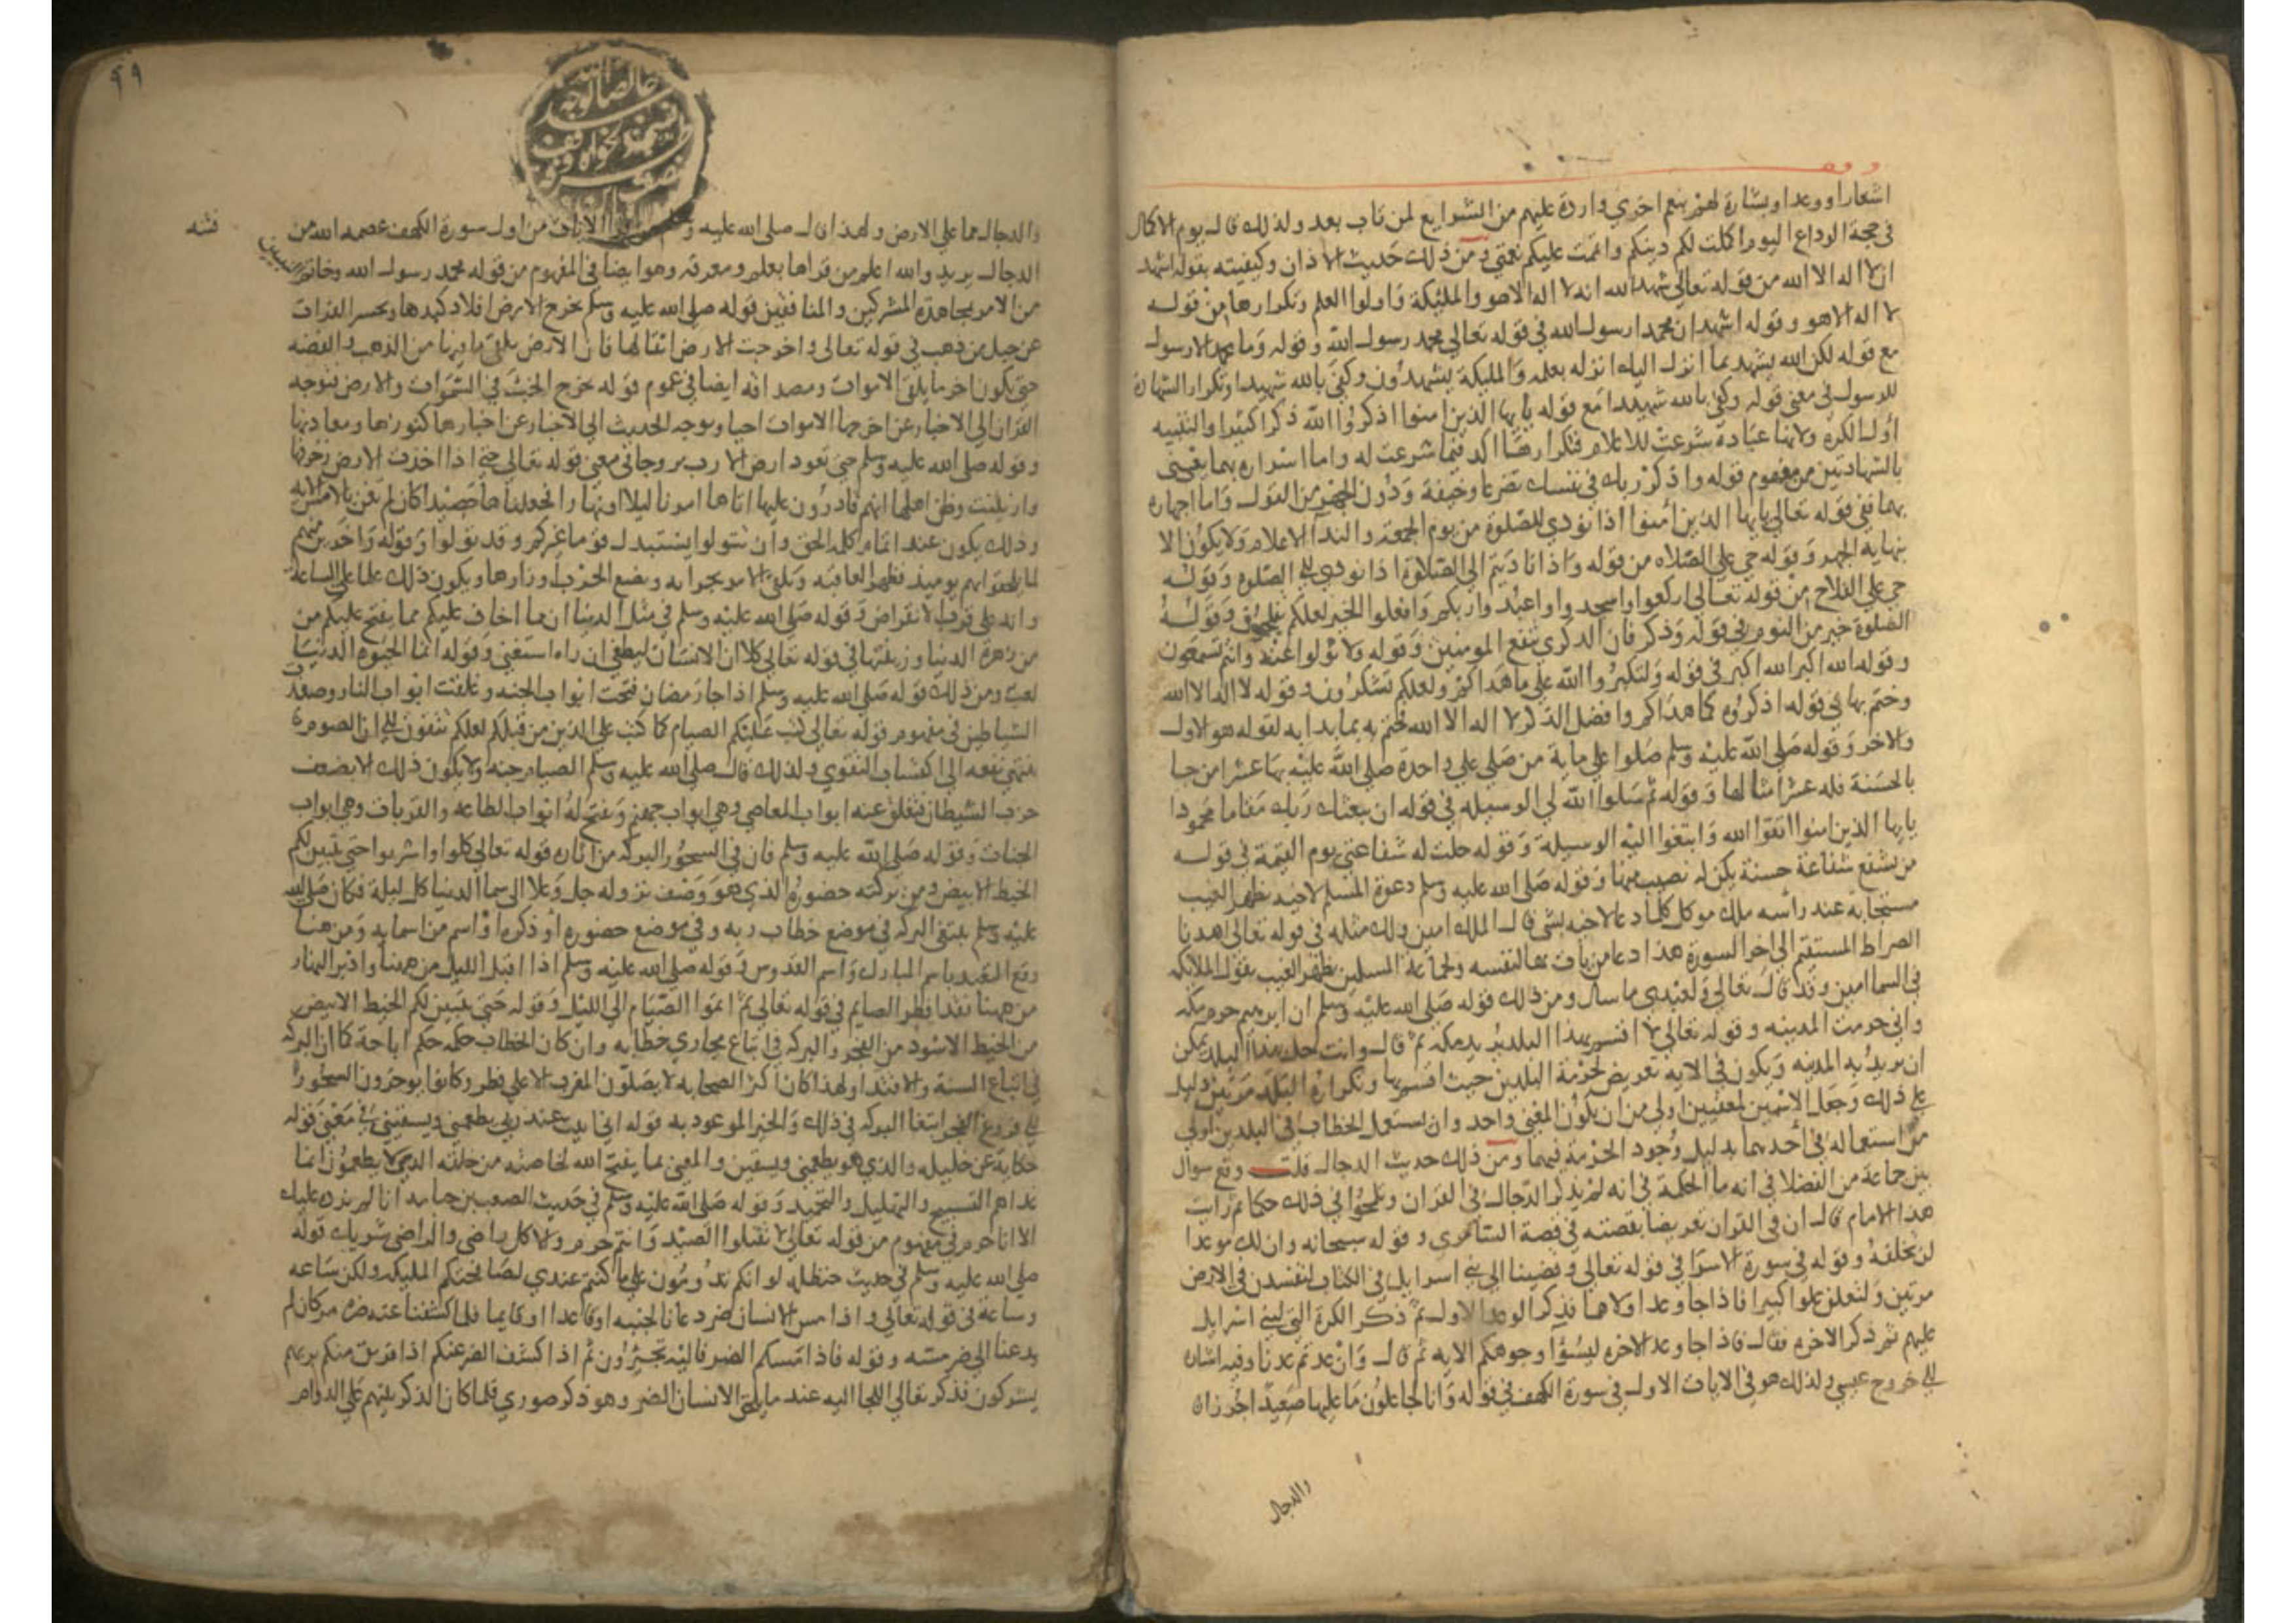 اشعارا ووعدا وبشارة لهم بنعم اخري واردة عليهم من الشرايع لمن تاب بعد ولذلك قال يوم الاكمال
في حجة الوداع اليوم اكملت لكم دينكم واتممت عليكم نعمتي ومن ذلك حديث الاذان وكيفيته بقوله اشهد
ان لا اله الا الله من قوله تعالي شهد الله انه لا اله الا هو والمليكة واولوا العلم وتكرارها من قوله
لا اله الا هو وقوله اشهد ان محمدا رسول الله في قوله تعالي محمد رسول الله وقوله وما محمد الا رسول
مع قوله لكن الله يشهد بما انزل اليك انزله بعلمه والمليكة يشهدون وكفي بالله شهيدا وتكرار الشهادة
للرسول في معني قوله وكفي بالله شهيدا مع قوله يايها الذين امنوا اذكروا الله ذكرا كثيرا والتثنيه
اول الكره ولانها عبادة شرعت للاعلام فتكرارها اكد فيما شرعت له واما اسراره بهما يعني
بالشهادتين من مفهوم قوله واذكر ربك في نفسك تضرعا وخيفة ودون الجهر من القول واما اجهاره
بهما ففي قوله تعالي يايها الذين امنوا اذا نودي للصلوة من يوم الجمعة والندا الاعلام ولا يكون الا
بنهاية الجهر وقوله حي علي الصلاه من قوله واذا ناديتم الي الصلاوة اذا نودي الي الصلوه وقوله
حي علي الفلاح من قوله تعالي اركعوا واسجدوا واعبدوا ربكم وافعلوا الخير لعلكم تفلحون وقوله
الصلوة خير من النوم في قوله وذكر فان الذكري تنفع المومنين وقوله ولا تولوا عنه وانتم تسمعون
وقوله الله اكبر الله اكبر في قوله ولتكبروا الله علي ما هداكم ولعلكم تشكرون وقوله لا اله الا الله
وختم بها في قوله اذكروه كما هداكم وافضل الذكر لا اله الا الله فختم به بما بدا به لقوله هو الاول
والاخر وقوله صلي الله عليه وسلم صلوا علي فانه من صلي علي واحدة صلي الله عليه بها عشرا من جا
بالحسنة فله عشر امثالها وقوله ثم سلوا الله لي الوسيله في قوله ان يبعثك ربك مقاما محمودا
يايها الذين امنوا اتقوا الله وابتغوا اليه الوسيلة وقوله حلت له شفاعتي يوم القيمة في قوله
من يشفع شفاعة حسنة يكن له نصيب منها وقوله صلي الله عليه وسلم دعوة المسلم لاخيه بظهر الغيب
مستجابة عند رأسه ملك موكل كلما دعا لاخيه بشي قال الملك امين ولك مثله في قوله تعالي اهدنا
الصراط المستقيم الي اخر السورة هذا دعا من يات بها لنفسه ولجماعة المسلمين بظهر الغيب بقول الملايكه
في السما امين وقد قال تعالي ولعبدي ما سال ومن ذلك قوله صلي الله عليه وسلم ان ابرهيم حرم مكه
واني حرمت المدينه وقوله تعالي لا اقسم بهذا البلد يريد مكة ثم قال وانت حل بهذا البلد يمكن
ان يريد به المدينه ويكون في الايه تعريض لحرمة البلدين حيث اقسم بها وتكراره البلد مرتين دليل
علي ذلك وجعل الاسمين لمعنيين اولي من ان يكون المعني واحد وان يستعمل الخطاب في البلدين اولي
من استعماله في احدهما بدليل وجود الحرمة فيهما ومن ذلك حديث الدجال قلت وقع سوال
بين جماعة من الفضلا في انه ما الحكمة في انه لم يذكر الدجال في القران وتلمحوا في ذلك حكما ثم رايت
هذا الامام قال ان في القران تعريضا بقصته في قصة السامري وقوله سبحانه وان لك موعدا
لن تخلفه وقوله في سورة الاسرا في قوله تعالي وقضينا الي بني اسرايل في الكتاب لتفسدن في الارض
مرتين ولتعلن علوا كبيرا فاذا جا وعد اولاهما فذكر الوعد الاول ثم ذكر الكرة التي لبني اسرايل
عليهم ثم ذكر الاخره فقال فاذا جا وعد الاخره ليسؤا وجوهكم الايه ثم قال وان عدتم عدنا وفيه اشارة
الي خروج عيسي ولذلك هو في الايات الاول في سورة الكهف في قوله وانا لجاعلون ما عليها صعيدا جرزا ن
والدجال
٩٩
والدجال مما علي الارض ولهذا قال صلي الله عليه وسلم من قرا الايات من اول سورة الكهف عصمه الله من
فتنه
الدجال يريد والله اعلم من قراها بعلم ومعرفه وهو ايضا في المفهوم من قوله محمد رسول الله وخاتم النبيين
من الامر بمجاهدة المشركين والمنافقين قوله صلي الله عليه وسلم يخرج الارض افلاد كبدها ويحسر الفرات
عن جبل من ذهب في قوله تعالي واخرجت الارض اثقالها فان الارض يلقي ما فيها من الذهب والفضه
حتي يكون اخر ما يلقي الاموات ومصداقه ايضا في عموم قوله يخرج الخبء في السموات والارض فتوجه
القران الي الاخبار عن اخرجها الاموات احيا وتوجه الحديث الي الاخبار عن اخبارها كنوزها ومعادنها
وقوله صلي الله عليه وسلم حتي تعود ارض العرب مروجا في معني قوله تعالي حتي اذا اخذت الارض زخرفها
وازينت وظن اهلها انهم قادرون عليها اتاها امرنا ليلا او نهارا فجعلناها حصيدا كان لم تغن بالامس الايه
وذلك يكون عند اتمام كلمه الحق وان تتولوا يستبدل قوما غيركم وقد تولوا وقوله واخرين منهم
لما يلحقوا بهم يوميذ فظهر العاقبه ويضع الحرب اوزارها ويكون ذلك علما علي الساعة
وانه علي قرب الانقراض وقوله صلي الله عليه وسلم في مثل الدنيا ان مما اخاف عليكم مما يفتح عليكم من
من زهرة الدنيا وزينتها في قوله تعالي كلا ان الانسان ليطغي ان راه استغني وقوله انما الحيوه الدنيا
لعب ومن ذلك قوله صلي الله عليه وسلم اذا جا رمضان فتحت ابواب الجنه وغلقت ابواب النار وصفدت
الشياطين في مفهوم قوله تعالي كتب عليكم الصيام كما كتب علي الذين من قبلكم لعلكم تتقون الي ان الصوم
ينتهي نفعه الي اكتساب التقوي ولذلك قال صلي الله عليه وسلم الصيام جنه ولا يكون ذلك الا بضعف
حزب الشيطان فتغلق عنه ابواب المعاصي وهي ابواب جهنم وتفتح له ابواب الطاعه والقربات وهي ابواب
الجنات وقوله صلي الله عليه وسلم فان في السحور البركه من اثاره قوله تعالي كلوا واشربوا حتي يتبين لكم
الخيط الابيض ومن بركته حضوره الذي هو وصف نزوله جل وعلا الي سما الدنيا كل ليلة فكان صلي الله
عليه وسلم يبتغي البركه في موضع خطاب ربه وفي موضع حضوره او ذكره او اسم من اسمايه ومن هنا
وقع التقييد باسم المبارك واسم القدوس وقوله صلي الله عليه وسلم اذا اقبل الليل من ههنا وادبر النهار
من ههنا فقد افطر الصايم في قوله تعالي ثم اتموا الصيام الي الليل وقوله حتي يتبين لكم الخيط الابيض
من الخيط الاسود من الفجر والبركه في اتباع مجاري خطابه وان كان الخطاب حكمه حكم اباحة كما ان البركه
في اتباع السنة والاقتدا ولهذا كان اكثر الصحابه لا يصلون المغرب الا علي فطر وكانوا يوخرون السحور
الي فروع الفجر ابتغا البركه في ذلك والخير الموعود به قوله اني ابيت عند ربي يطعمني ويسقيني في معني قوله
حكاية عن خليله والذي هو يطعمني ويسقين والمعني بما يفتح الله لخاصته من خلقه الذين لا يطعمون انما
غداهم التسبيح والتهليل والتحميد وقوله صلي الله عليه وسلم في حديث الصعب بن جثامه انا لم نرده عليك
الا انا حرم في مفهوم من قوله تعالي لا تقتلوا الصيد وانتم حرم ولا كل راضي والراضي شريك قوله
صلي الله عليه وسلم في حديث حنظله لو انكم تدومون علي ما كنتم عندي لصافحتكم المليكه ولكن ساعه
وساعة في قوله تعالي واذا مس الانسان الضر دعانا لجنبه او قاعدا او قايما فلما كشفنا عنه ضره مر كان لم
يدعنا الي ضر مسه وقوله فاذا مسكم الضر فاليه تجئرون ثم اذا كشف الضر عنكم اذا فريق منكم بربهم
يشركون فذكر تعالي اللجا اليه عند ما يلحق الانسان الضر وهو ذكر صوري فلما كان الذكر يليهم علي الدوام